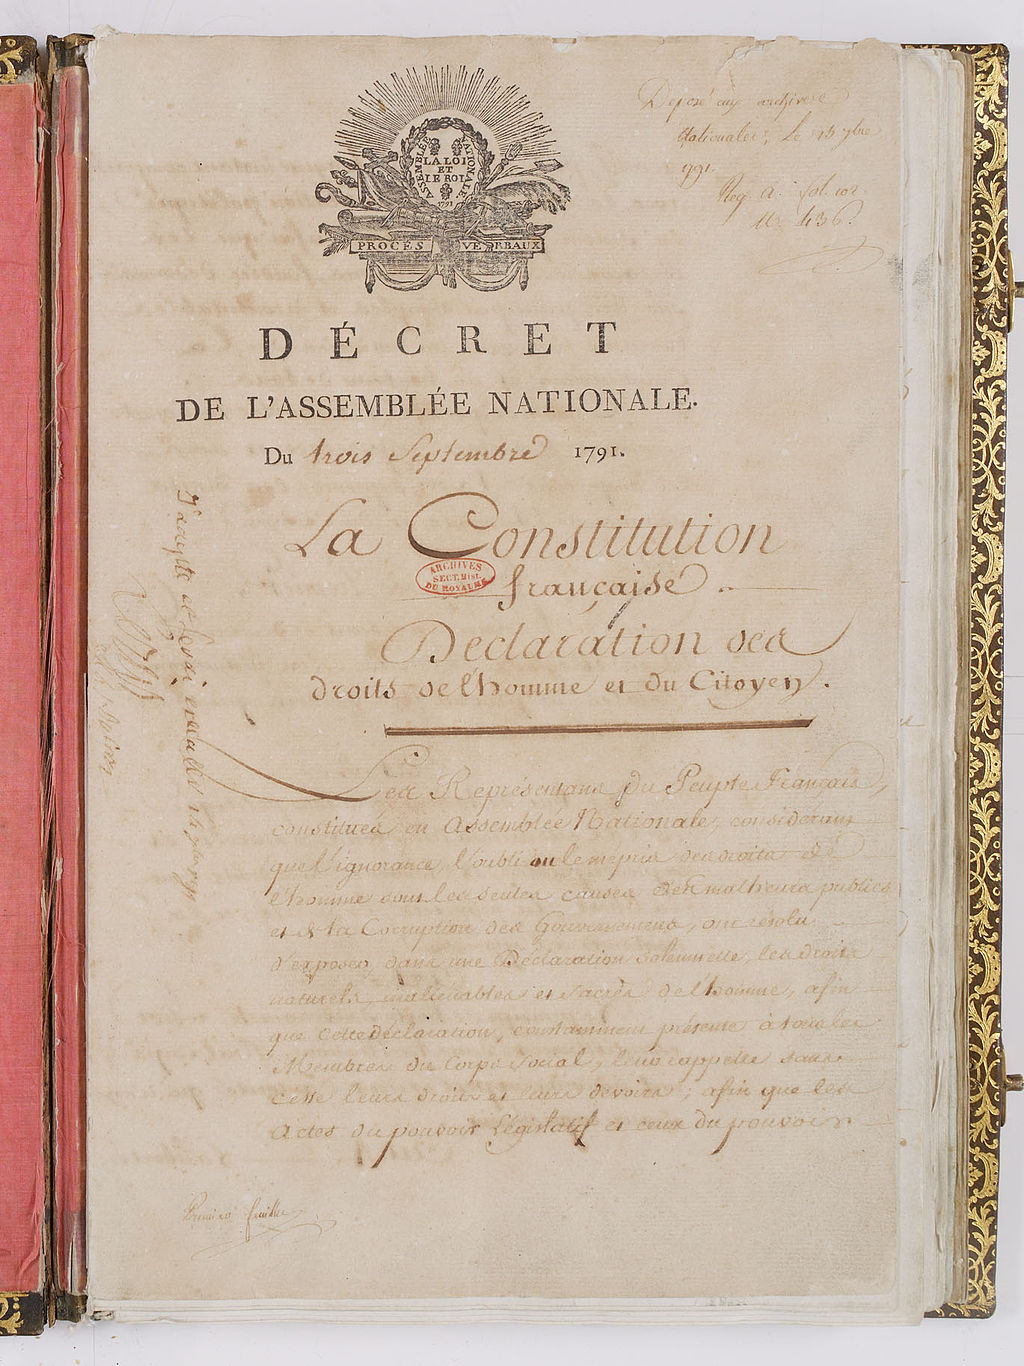 ASSEMBLÉE NATIONALE
LA LOI
ET
LE ROI
1791
PROCÈS VERBAUX
Déposé aux archives
Nationales, le 15 7bre
1791.
Reg. A. fol. 102
n.o 436
DÉCRET
DE L'ASSEMBLÉE NATIONALE.
Du trois Septembre 1791.
La Constitution
française.
ARCHIVES
SECT. Hist.
DU ROYAUME
Déclaration des
droits de l'homme et du Citoyen.
Les Représentans du Peuple Français,
constitués en Assemblée Nationale, considérant
que l'ignorance, l'oubli ou le mépris des droits de
l'homme sont les seules causes des malheurs publics
et de la Corruption des Gouvernemens, ont résolu
d'exposer, dans une Déclaration solemnelle, les droits
naturels, inaliénables et sacrés de l'homme, afin
que cette déclaration, constamment présente à tous les
Membres du Corps Social, leur rappelle sans
cesse leurs droits et leurs devoirs; afin que les
Actes du pouvoir Législatif et ceux du pouvoir
J'accepte et ferai exécuter 14 7bre 1791
Louis
Première feuille